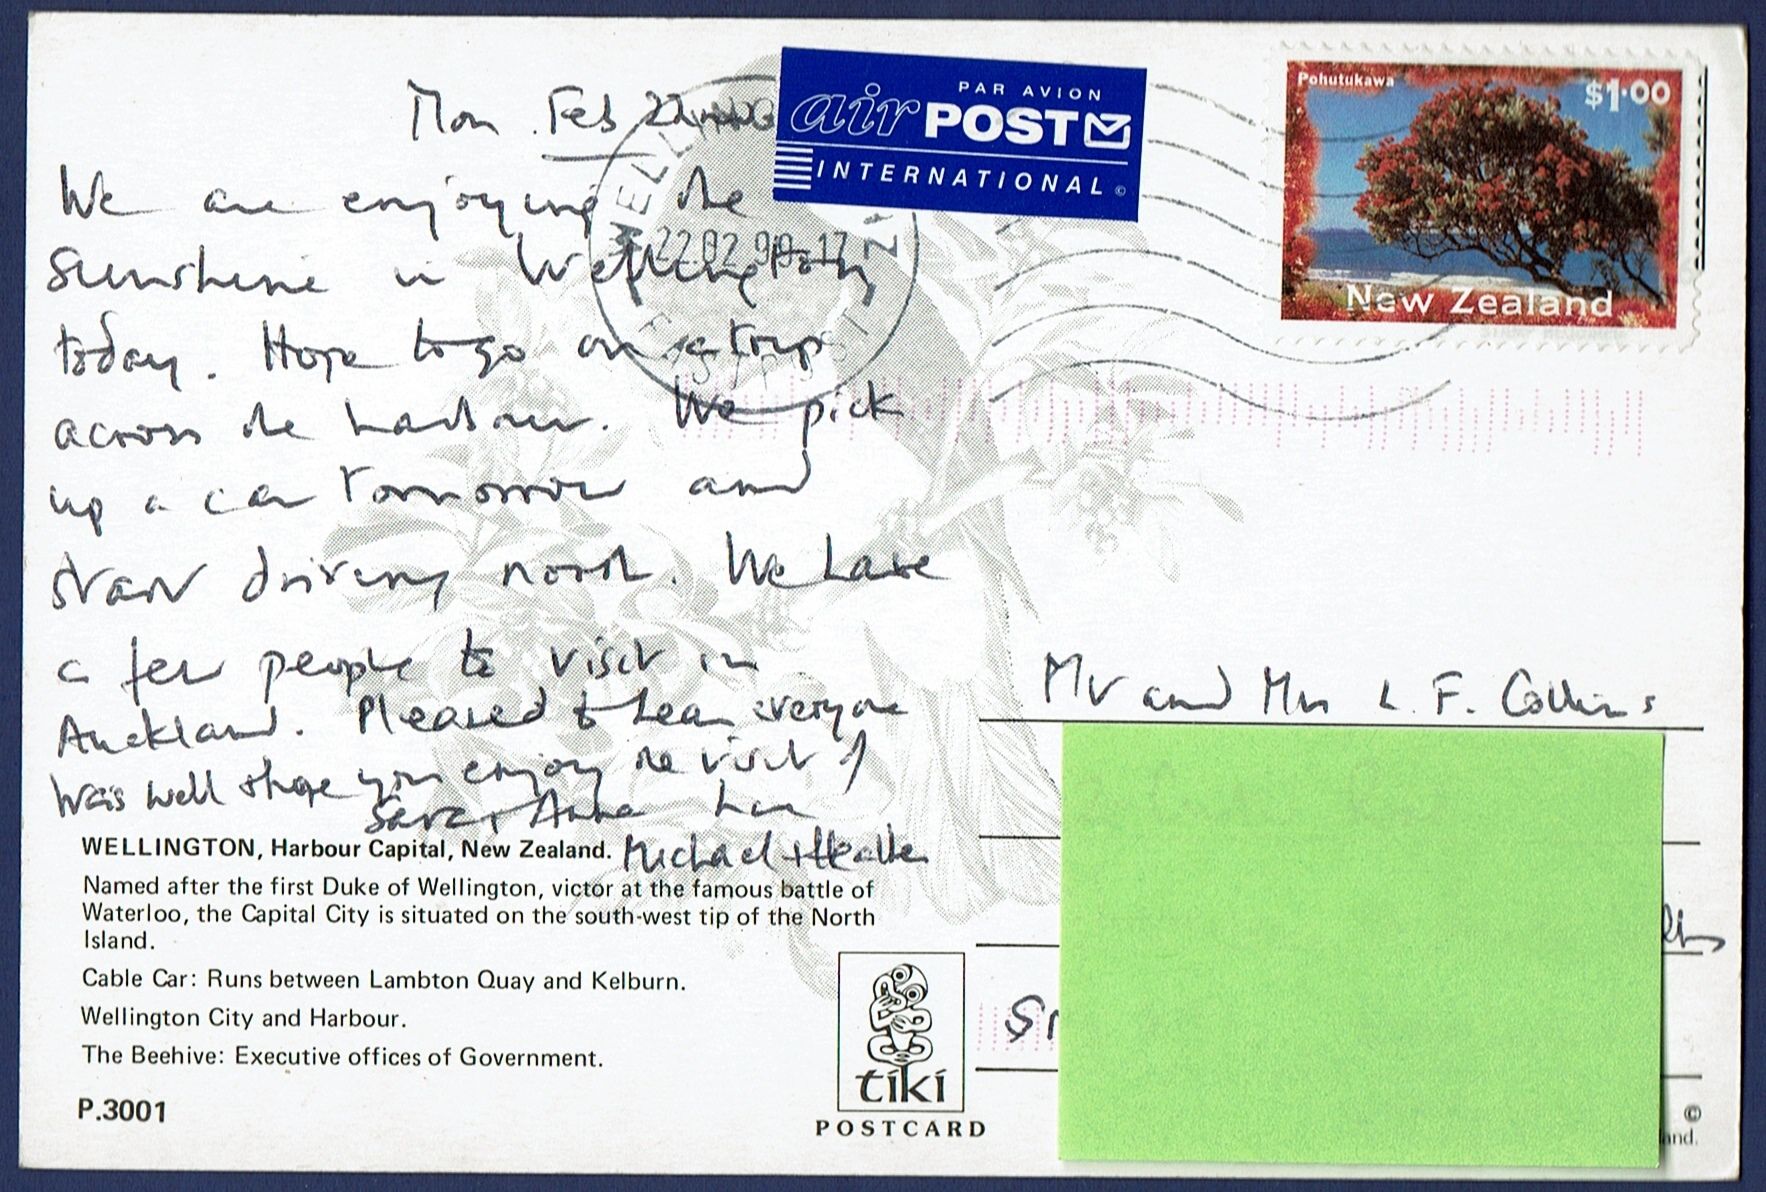 Mon Feb 22nd
We are enjoying the
sunshine in Wellington
today. Hope to go on a trip
across the harbour. We pick
up a car tomorrow and
start driving north. We have
a few people to visit in
Auckland. Pleased to hear everyone
was well & hope you enjoy the visit of
Sara & Anna
Michael + Heather
PAR AVION
air POST
INTERNATIONAL ©
WELLINGTON
22.02.99-17
N.Z.
Pohutukawa
$1.00
New Zealand
Mr and Mrs L. F. Collins
WELLINGTON, Harbour Capital, New Zealand.
Named after the first Duke of Wellington, victor at the famous battle of
Waterloo, the Capital City is situated on the south-west tip of the North
Island.
Cable Car: Runs between Lambton Quay and Kelburn.
Wellington City and Harbour.
The Beehive: Executive offices of Government.
P.3001
tiki
POSTCARD
©
and.